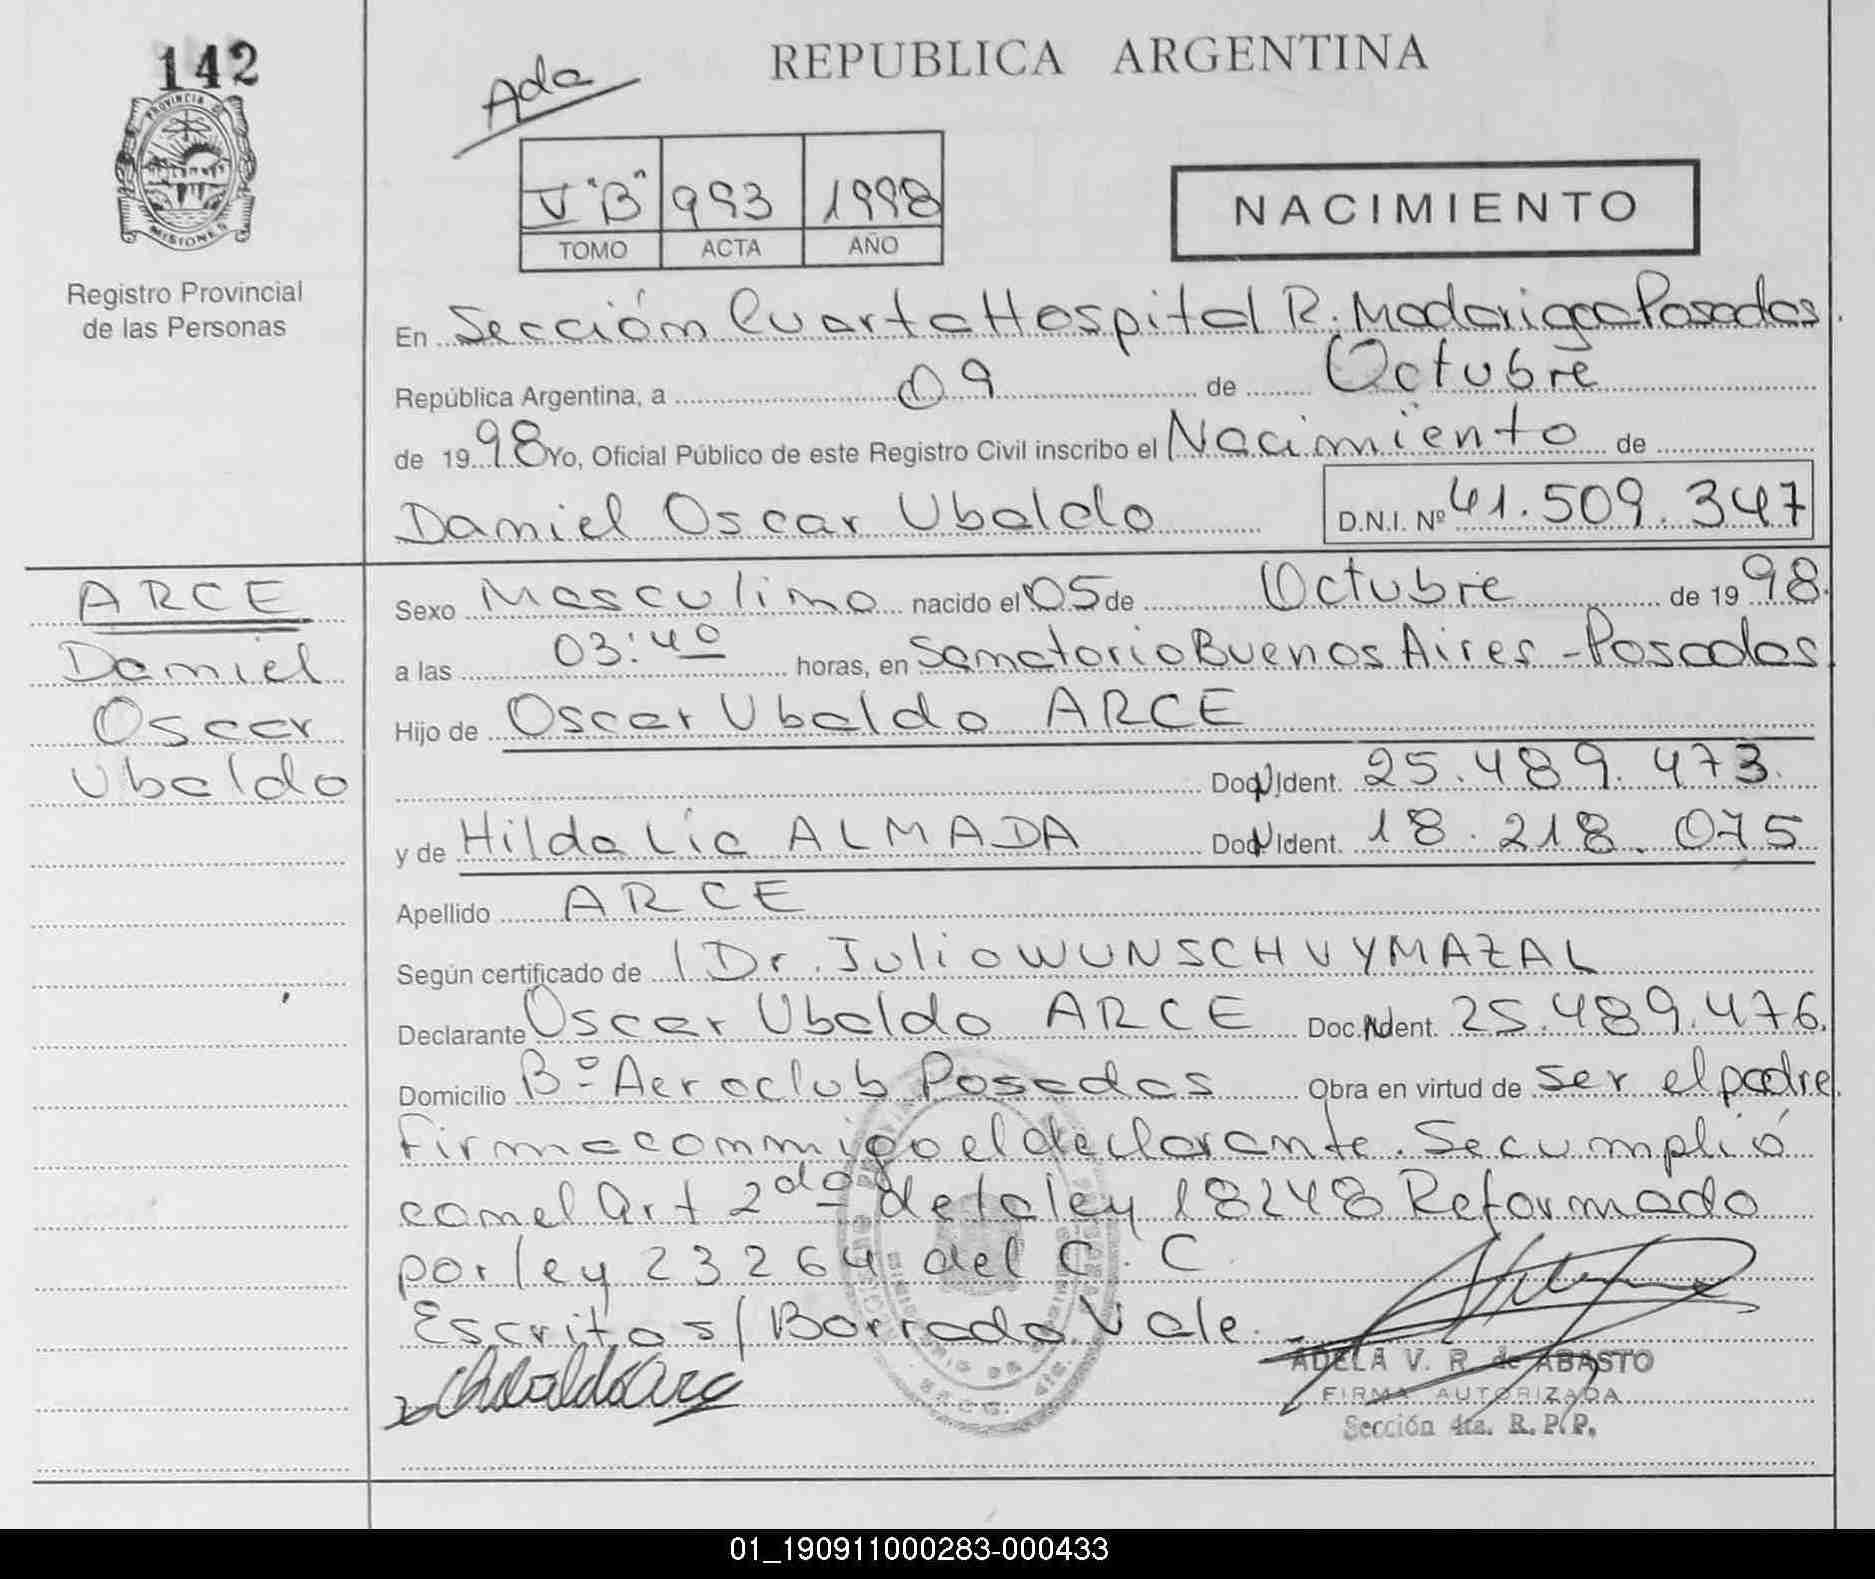 142
REPUBLICA ARGENTINA
Ada
PROVINCIA D
MISIONES
V "B" 993 1998
TOMO ACTA AÑO
NACIMIENTO
Registro Provincial
de las Personas
En Sección Cuarta Hospital R. Madariaga Posadas.
República Argentina, a 09 de Octubre
de 1998 Yo, Oficial Público de este Registro Civil inscribo el Nacimiento de
Daniel Oscar Ubaldo D.N.I. Nº 41.509.347
ARCE
Daniel
Oscar
Ubaldo
Sexo Masculino nacido el 05 de Octubre de 1998.
a las 03:40 horas, en Sanatorio Buenos Aires - Posadas
Hijo de Oscar Ubaldo ARCE
Doc. N Ident. 25.489.473.
y de Hilda Lía ALMADA Doc. N Ident. 18.218.075
Apellido ARCE
Según certificado de Dr. Julio WUNSCH VYMAZAL
Declarante Oscar Ubaldo ARCE Doc. N Ident. 25.489.476.
Domicilio Bº Aeroclub Posadas Obra en virtud de ser el padre.
Firma conmigo el declarante. Se cumplió
con el Art 2do de la ley 18248 Reformado
por ley 23264 del C.C.
Escritos/Borrado Vale.
Ubaldo Arce
ADELA V. R. de ABASTO
FIRMA AUTORIZADA
Sección 4ta. R.P.P.
01_190911000283-000433